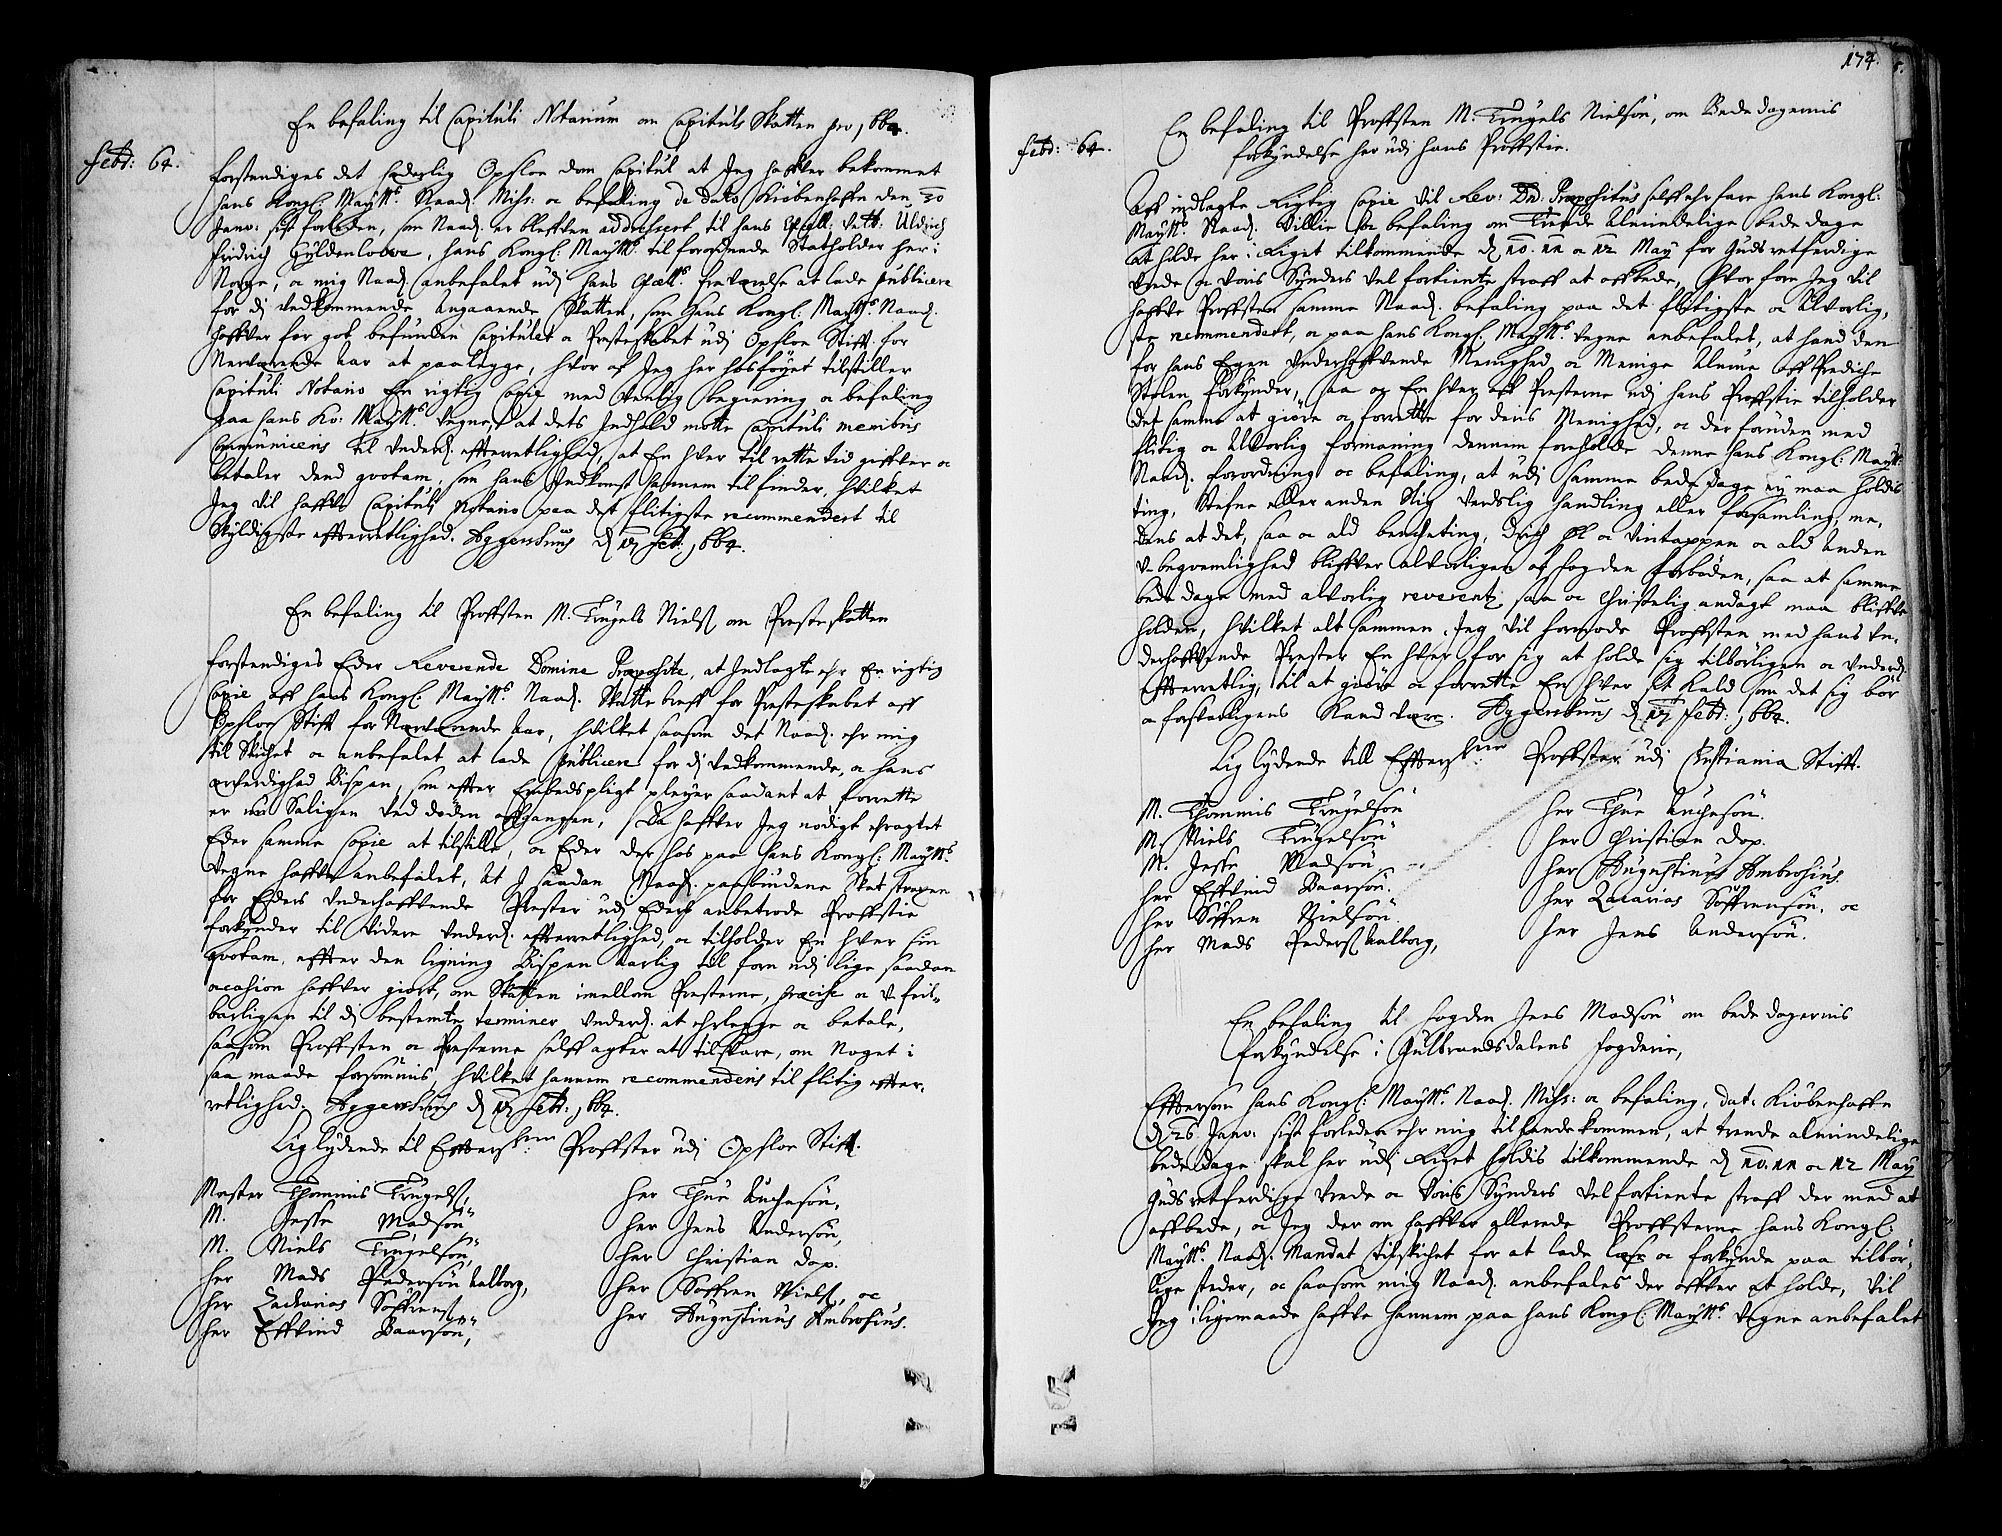 En befaling til Capituli Notarium om Capituls Skatten pro 1664.
Febr: 64.
Forstendiges det hæderlig Opsloe dom Capitul at Jeg haffver bekommet
hans Kongl: Maytts Naad. Miss: oc befaling de dato Kiøbenhaffn den 30
Janv: sist forleden, som Naad. er bleffven addresseret til hans Excell: Velb: Uldrich
Fridrich Gyldenlowe, hans Kongl: Maytts tilforordnede Statholder her i
Norge, oc mig Naad. anbefalet udj hans fraværelse at lade publicere
for dj vedkommende angaaende Skatten, som hans Kongl: Maytts Naad.
haffver for got befunden Capitulet oc Presteskabet udj Opsloe Stift for
Nerværende Aar at paalegge, hvor af Jeg her hosføyet tilstiller
Capituli Notario En rigtig Copie med venlig begiering oc befaling
paa hans Ko: Maytts Vegne, at dets Indhold motte Capituli membris
Communiceris til Underd. efterretlighed, at En hver til rette tid giffver oc
betaler dend qvotam, som hans Indkomst hannem tilfinder, hvilket
Jeg vil haffve Capituli Notario paa det flitigste recommendert til
skyldigste efterretlighed. Aggershuus d. 17 Feb: 1664.
En befaling til Proffsten M. Trugels Niels om Presteskatten
Forstendiges Eder Reverende Domine Præposite, at Indlagte ehr En rigtig
Copie aff hans Kongl: Maytts Naad. Skatte breff for Presteskabet aff
Opsloe Stift for Nærværende Aar, hvilket saasom det Naad. ehr mig
til Skichet oc anbefalet at lade publicere for dj vedkommende, oc hans
ærverdighed Bispen, som efter Embedspligt pleyer saadant at forrette
er nu Saligen ved døden affgangen, Da haffver Jeg nødigt eragtet
Eder samme Copie at tilstille, oc Eder der hos paa hans Kongl: Maytts
Vegne haffve anbefalet, at I saadan Naad. paabudene Skat straxen
for Eders underhaffvende Prester udj Eders anbetrode Proffstie
forkynder til videre Underd. efterretlighed, oc tilholder En hver sin
qvotam, effter den ligning Bispen Aarlig til forn udj lige saadan
occasion haffver giort, om Skatten imellom Presterne, præcise oc u-feil-
barligen til dj bestemte terminer Underd. at erlegge oc betale,
saasom Proffsten oc Presterne selff agter at tilsvare, om Noget i
saa maade forsømmis, hvilket hannem recommenderis til flitig effter-
retlighed. Aggershuus d. 17 Febr: 1664.
Liglydende til Effterschrne: Proffster udj Opsloe Stift.
Mester Thommis Trugels,
M. Jesse Madsøn,
M. Niels Trugelsøn,
Her Mads Pedersøn Aalborg,
Her Zacharias Søffrens,
Her Effvind Baarsøn,
Her Thue Auchesøn,
Her Jens Andersøn,
Her Christian Dop.
Her Søffren Niels, oc
Her Augustinus Ambrosius.
174.
En befaling til Proffsten M. Trugels Nielsøn, om Bede dagernis
forkyndelse her udj hans Proffstie.
Febr: 64.
Aff indlagte rigtig Copie vil Rev: Dn: Præpositus selff erfare hans Kongl:
Maytts Naad. Villie oc befaling om Trende Almindelige bede dage
at holde her i Riget tilkommende d. 10. 11 oc 12 May for Guds retferdige
Vrede oc Voris Synders vel fortiente straff at affbede, hvor fore Jeg vil
haffve Proffsten samme Naad. befaling paa det flitigste oc Alvorlig-
ste recommendert, oc paa hans Kongl: Maytts Vegne anbefalet, at hand den
for hans Egen Underhaffvende Menighed oc Menige Almue aff Prediche
Stolen forkynder, saa og En hver aff Presterne udj hans Proffstie tilholder
det samme at giøre oc forrette for deris Menighed, oc der foruden med
flitig oc Alvorlig formaning dennem foreholde denne hans Kongl: Maytts
Naad. forordning oc befaling, at udj samme bede Dage ey maa holdis
ting, Stefne eller anden slig Verdslig handling eller forsamling, me-
dens at det, saa oc ald bencheting, drich Øl oc Vintappen oc ald Anden
u-begvemlighed bliffver alvorligen af fogden forboden, saa at samme
bede dage med alvorlig reverentz saa oc Christelig andagt maa bliffve
holden, hvilket alt sammen Jeg vil formode Proffsten med hans Un-
derhaffvende Prester En hver for sig at holde sig tilbørligen oc Underd.
effterretlig, til at giøre oc forrette En hver sit Kald som det sig bør
oc forsvarligens kand være. Aggershuus d. 17 Febr: 1664.
Liglydende till Effterschrne: Proffster udj Christiania Stift.
M. Thommis Trugelsøn
M. Niels Trugelsøn
M. Jesse Madsøn
Her Effvind Baarsøn.
Her Søffren Nielsøn.
Her Mads Peders Aalborg,
Her Thue Auchesøn.
Her Christian Dop.
Her Augustinus Ambrosius.
Her Zacarias Søffrensøn, oc
Her Jens Andersøn.
En befaling til fogden Jens Madsøn om bede dagernis
forkyndelse i Gulbrandsdalens fogderie,
Effterson hans Kongl: Maytts Naad. Miss: oc befaling, dat: Kiøbenhaffn
d. 26 Janv: sist forleden ehr mig tilhende kommen, at trende almindelige
bededage skal her udj Riget holdis tilkommende d. 10. 11 oc 12 May
Guds retferdige Vrede oc Voris Synders vel fortiente straff der med at
affbede, oc Jeg der om haffver allerede Proffsterne hans Kongl:
Maytts Naad. Mandat tilskichet for at lade læse oc forkynde paa tilbør-
lige steder, oc saasom mig Naad. anbefales der offver at holde, vil
Jeg i ligemaade haffve hannem paa hans Kongl: Maytts Vegne anbefalet